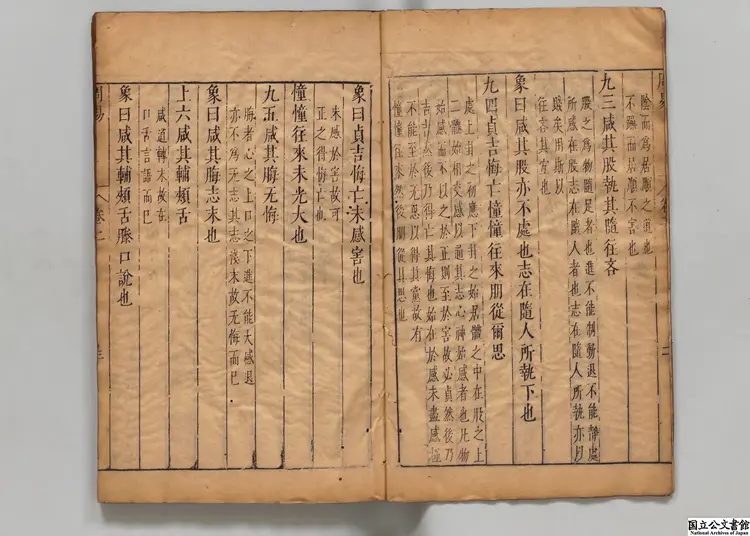 周易
二
陰而為居順之道也
不躁而居順不害也
九三咸其股執其隨往吝
股之為物隨足者也進不能制動退不能靜處
所感在股志在隨人者也志在隨人所執亦以
賤矣用斯以
往吝其宜也
象曰咸其股亦不處也志在隨人所執下也
九四貞吉悔亡憧憧往來朋從爾思
處上卦之初應下卦之始居體之中在股之上
二體始相交感以通其志心神始感者也凡物
始感而不以之於正則至於害故必貞然後乃
吉吉然後乃得亡其悔也始在於感未盡感極
不能至於无思以得其黨故有
憧憧往來然後朋從其思也
象曰貞吉悔亡未感害也
未感於害故可
正之得悔亡也
憧憧往來未光大也
九五咸其脢无悔
脢者心之上口之下進不能大感退
亦不為无志其志淺末故无悔而已
象曰咸其脢志末也
上六咸其輔頰舌
咸道轉末故在
口舌言語而已
象曰咸其輔頰舌滕口說也
周易
卷二
三
国立公文書館
National Archives of Japan